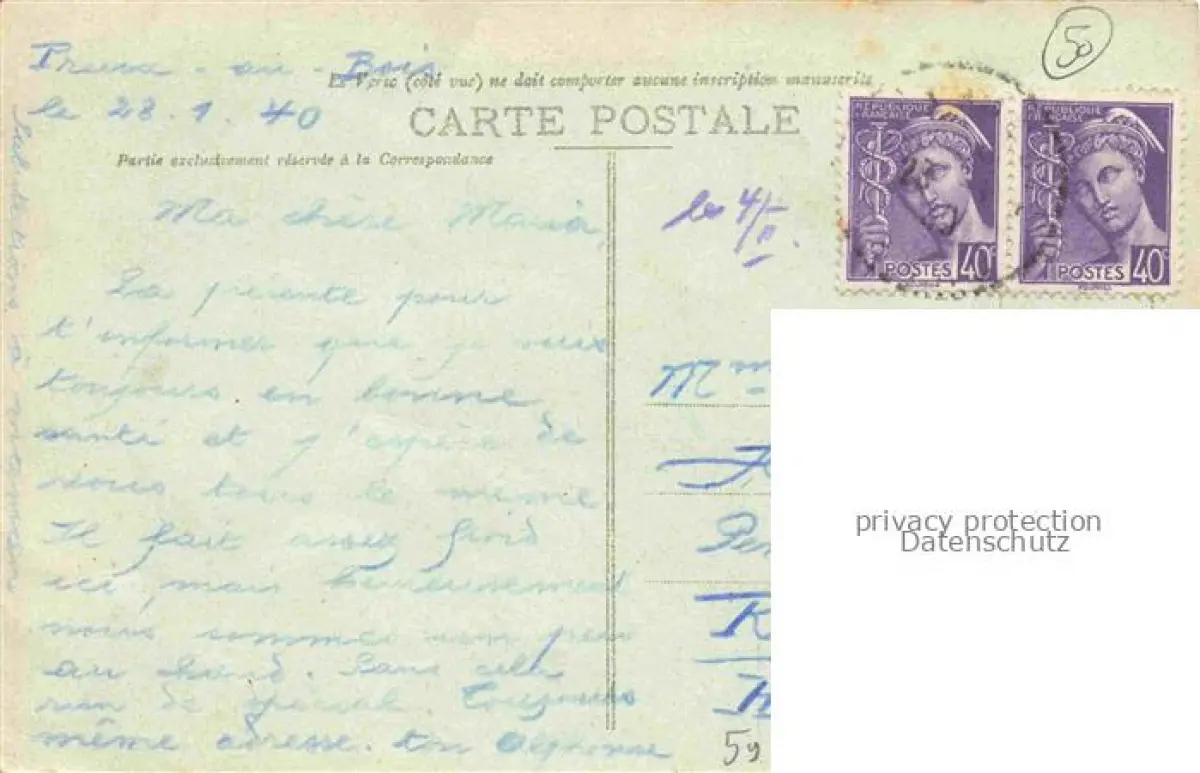 au - Bois
le 28 1 40
Le Verso (côté vue) ne doit comporter aucune inscription manuscrite
CARTE POSTALE
Partie exclusivement réservée à la Correspondance
50
RÉPUBLIQUE FRANÇAISE
POSTES 40c
RÉPUBLIQUE FRANÇAISE
POSTES 40c
les 4/II.
Ma chère Maria,
La présente pour
t'informer que je suis
toujours en bonne
santé et j'espère de
vous tous le même
Il fait assez froid
ici, mais heureusement
nous sommes un peu
au chaud. Sans cela
rien de spécial. Toujours
même adresse. ton Alphonse
Mme
Pen
K
privacy protection
Datenschutz
59